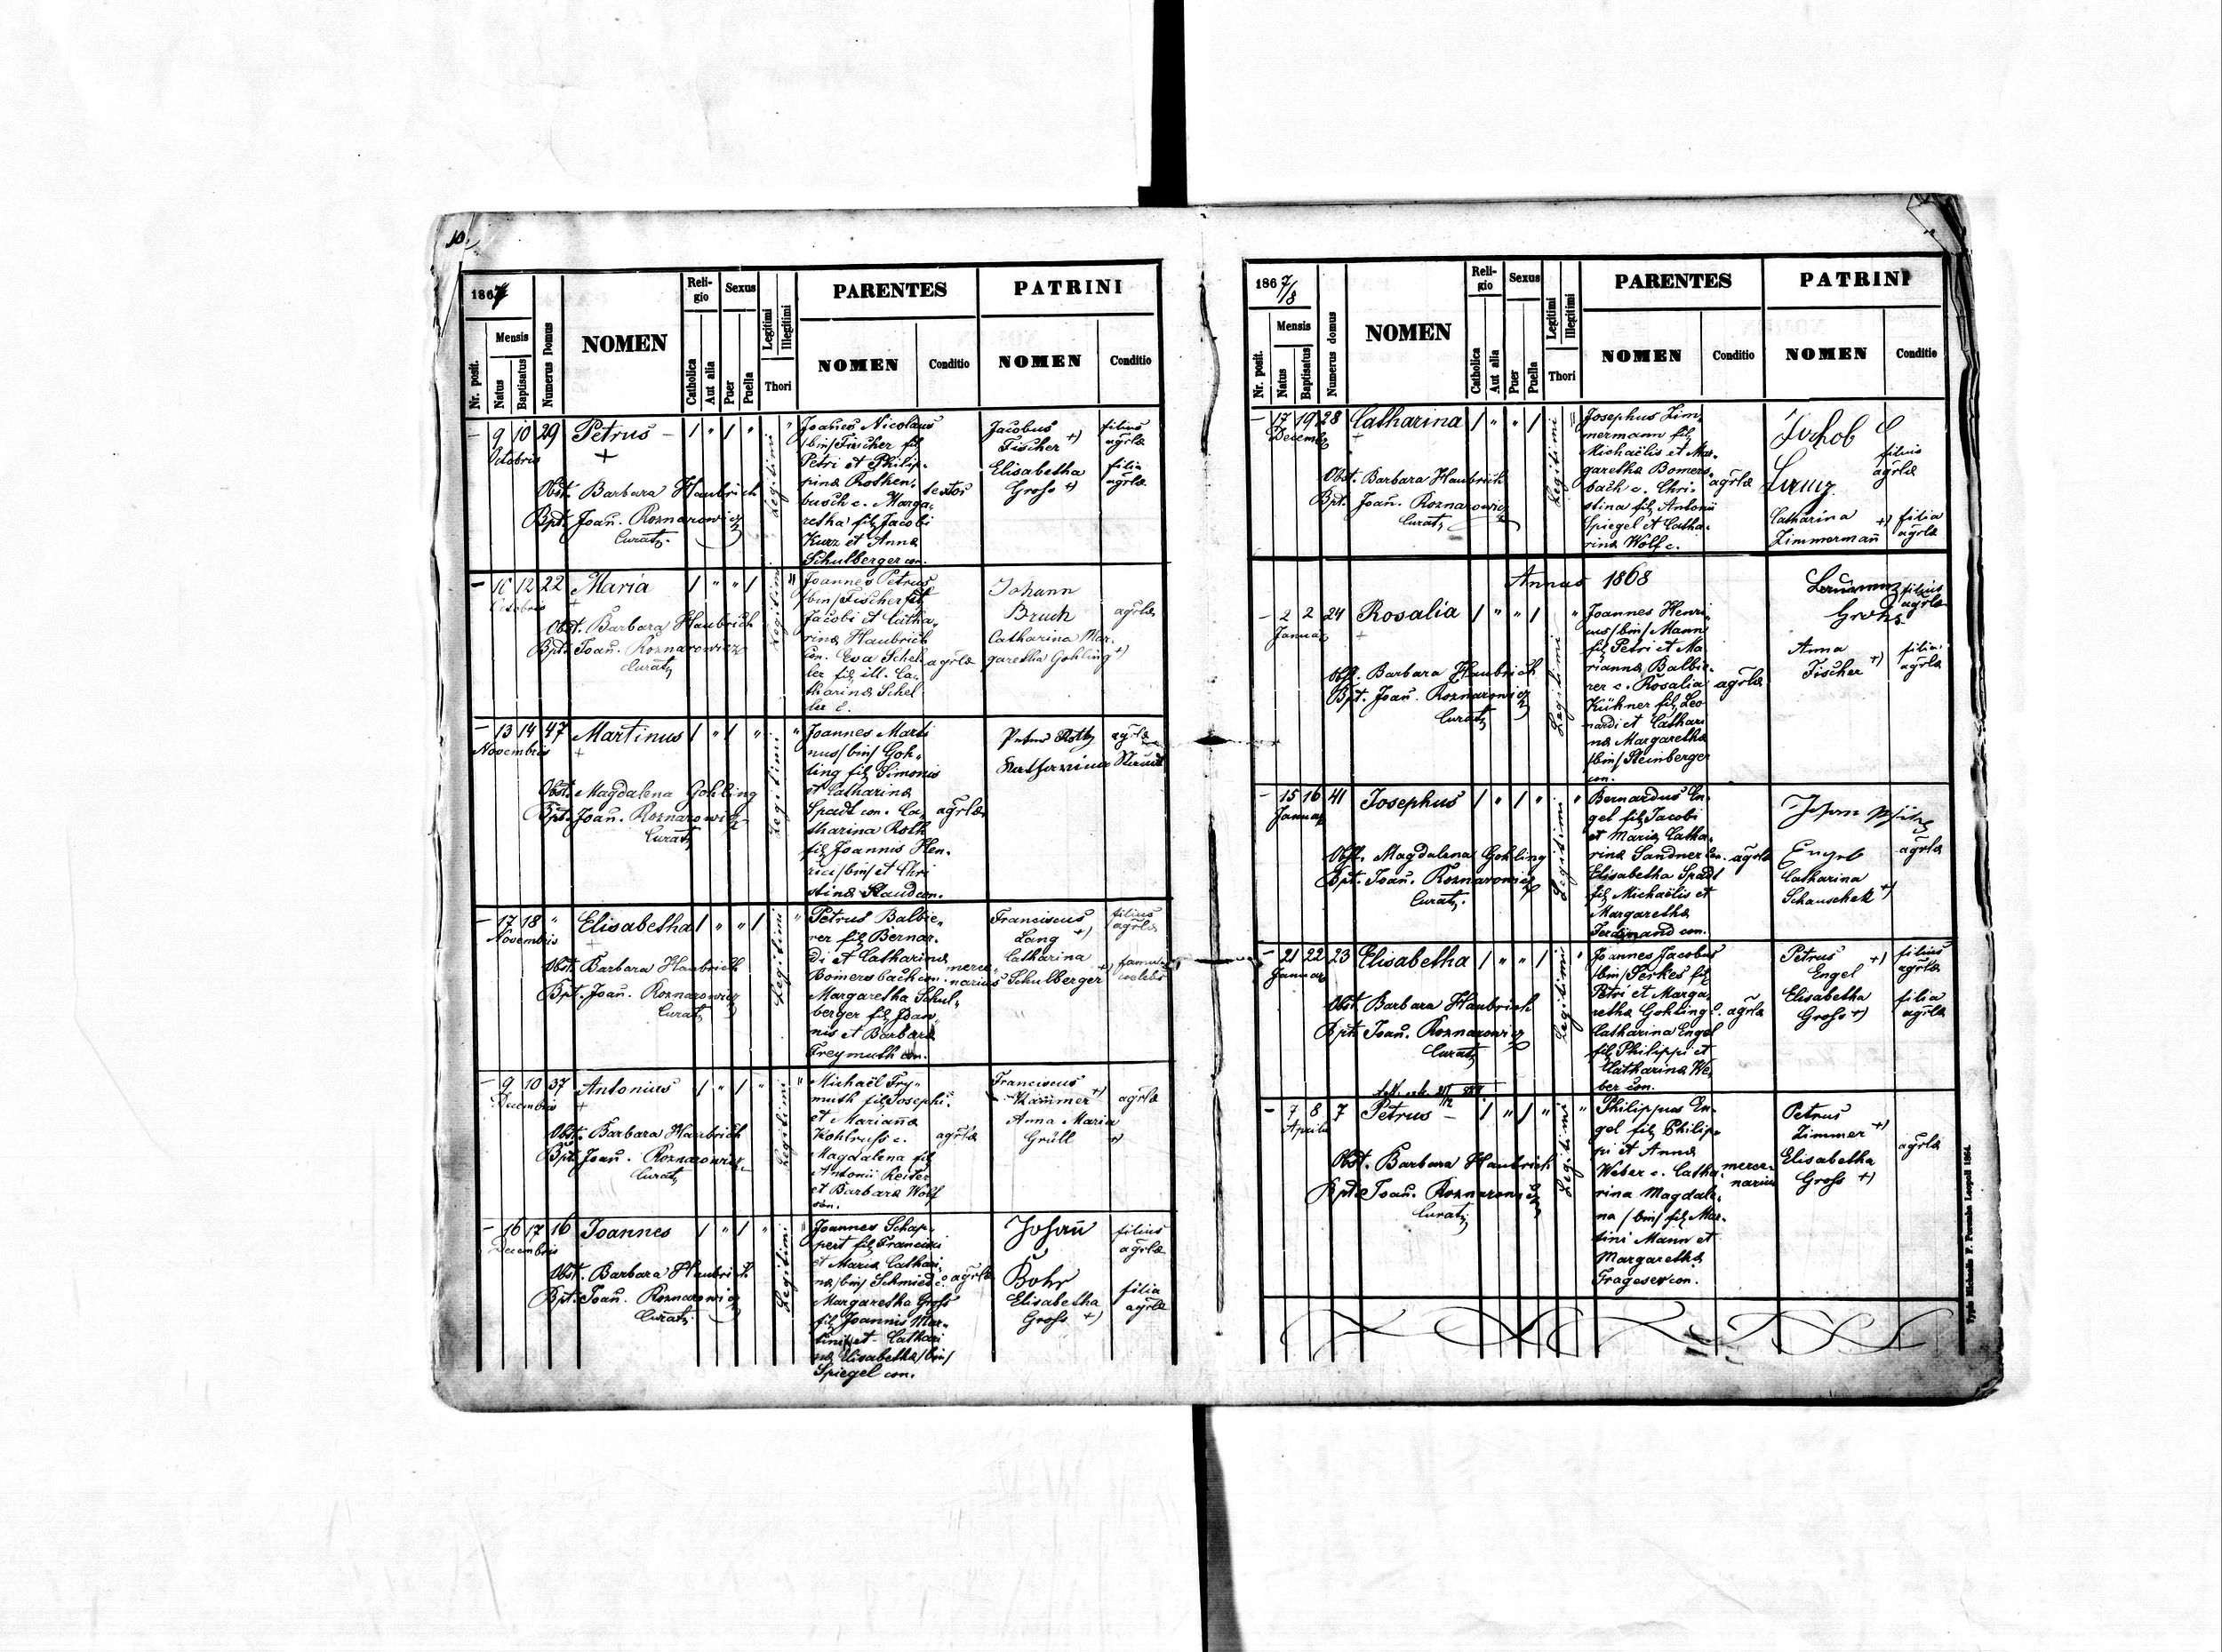 10.
1867
Nr. posit.
Mensis
Natus
Baptisatus
Numerus Domus
NOMEN
Religio
Catholica
Aut alia
Sexus
Puer
Puella
Legitimi
Illegitimi
Thori
PARENTES
NOMEN
Conditio
PATRINI
NOMEN
Conditio
– 9 10 29 Petrus – / " / "
Octobris +
Obst. Barbara Haubrich
Bpt. Joañ. Roznarowicz
Curatꝫ
Legitimi "
Joañes Nicolaus
/bin/ Fischer fil
Petri et Philip-
pina Rothen-
busch c. Marga-
retha filꝫ Jacobi
Kurz et Anna
Schulberger con.
textor
Jacobus
Fischer +)
Elisabetha
Gross +)
filius
agrlæ
filia
agrlæ
– 10 12 22 Maria / " " /
Octobris +
Obst. Barbara Haubrich
Bpt. Joañ. Roznarowicz
Curatꝫ
Legitimi "
Joannes Petrus
/bin/ Fischer fil
Jacobi et Catha-
rina Haubrich
con. Eva Schel-
ler filꝫ ill. Ca-
tharina Schel
ler c.
agrlæ
Johann
Bruch
Catharina Mar-
garetha Gohling +)
agrlæ
– 13 14 47 Martinus / " / "
Novembris +
Obst. Magdalena Gohling
Bpt. Joañ. Roznarowicz
Curatꝫ
Legitimi "
Joannes Marti
nus /bin/ Goh-
ling filꝫ Simonis
et Catharina
Spadt con. Ca-
tharina Roth
filꝫ Joannis Hen-
rici /bin/ et Chri
stina Staud con.
agrlæ
Peter Roth
Katharina Staudt
agrlæ
– 17 18 " Elisabetha / " " /
Novembris +
Obst. Barbara Haubrich
Bpt. Joañ. Roznarowicz
Curatꝫ
Legitimi "
Petrus Balbie-
rer filꝫ Bernar-
di et Catharina
Bomersbach con.
Margaretha Schul-
berger filꝫ Joan-
nis et Barbara
Freymuth con.
merce-
narius
Franciscus
Lang +)
Catharina
Schulberger +)
filius
agrlæ
– 9 10 37 Antonius / " / "
Decembris +
Obst. Barbara Haubrich
Bpt. Joañ. Roznarowicz
Curatꝫ
Legitimi "
Michaël Fry-
muth filꝫ Josephi
et Mariaña
Kohlruss c.
Magdalena fil
Antonii Reiter
et Barbara Wolf
con.
agrlæ
Franciscus
Kammer +)
Anna Maria
Grüll +)
agrlæ
– 16 17 16 Joannes / " / "
Decembris
Obst. Barbara Haubrich
Bpt. Joañ. Roznarowicz
Curatꝫ
Legitimi "
Joannes Schap-
pert filꝫ Francisci
et Maria Cathari-
na /bin/ Schmied c.
Margaretha Gross
filꝫ Joannis Mar-
tini et Cathari
na Elisabetha /bin/
Spiegel con.
agrlæ
Johañ
Bohr
Elisabetha
Gross +)
filius
agrlæ
filia
agrlæ
1867/8
Nr. posit.
Mensis
Natus
Baptisatus
Numerus domus
NOMEN
Religio
Catholica
Aut alia
Sexus
Puer
Puella
Legitimi
Illegitimi
Thori
PARENTES
NOMEN
Conditio
PATRINI
NOMEN
Conditio
– 17 19 28 Catharina / " " /
Decemb +
Obst. Barbara Haubrich
Bpt. Joañ. Roznarowicz
Curatꝫ
Legitimi
Josephus Zim-
mermann filꝫ
Michaëlis et Mar-
garetha Bomers-
bach c. Chri-
stina filꝫ Antonii
Spiegel et Catha-
rina Wolf c.
agrlæ
Jockob
Lanz
Catharina
Zimmermañ +)
filius
agrlæ
filia
agrlæ
Annus 1868
– 2 2 24 Rosalia / " " /
Januar +
Obst. Barbara Haubrich
Bpt. Joañ. Roznarowicz
Curatꝫ
Legitimi "
Joannes Henri-
cus /bin/ Mann
filꝫ Petri et Ma
rianna Balbie-
rer c. Rosalia
Kühner filꝫ Leo
nardi et Cathari
na Margaretha
/bin/ Steinberger
con.
agrlæ
Anna
Fischer +)
filius
agrlæ
filia
agrlæ
– 15 16 41 Josephus / " / "
Januar
Obst. Magdalena Gohling
Bpt. Joañ. Roznarowicz
Curatꝫ
Legitimi "
Bernardus En-
gel filꝫ Jacobi
et Maria Catha-
rina Sandner con.
Elisabetha Spadt
filꝫ Michaëlis et
Margaretha
Ferdinand con.
agrlæ
Engel
Catharina
Schauschek +)
agrlæ
– 21 22 23 Elisabetha / " " /
Januar
Obst. Barbara Haubrich
Bpt. Joañ. Roznarowicz
Curatꝫ
Legitimi "
Joannes Jacobus
/bin/ Serkes filꝫ
Petri et Marga-
retha Gohling c.
Catharina Engel
filꝫ Philippi et
Catharina We-
ber con.
agrlæ
Petrus
Engel +)
Elisabetha
Gross +)
filius
agrlæ
filia
agrlæ
– 7 8 7 Petrus – / " / "
Aprilis
Obst. Barbara Haubrich
Bpt. Joañ. Roznarowicz
Curatꝫ
Legitimi "
Philippus En-
gel filꝫ Philip-
pi et Anna
Weber c. Catha-
rina Magdale-
na /bin/ filꝫ Mar-
tini Mann et
Margaretha
Frageser con.
merce-
narius
Petrus
Zimmer +)
Elisabetha
Gross +)
agrlæ
Typis Michaelis F. Poremba Leopoli 1864.